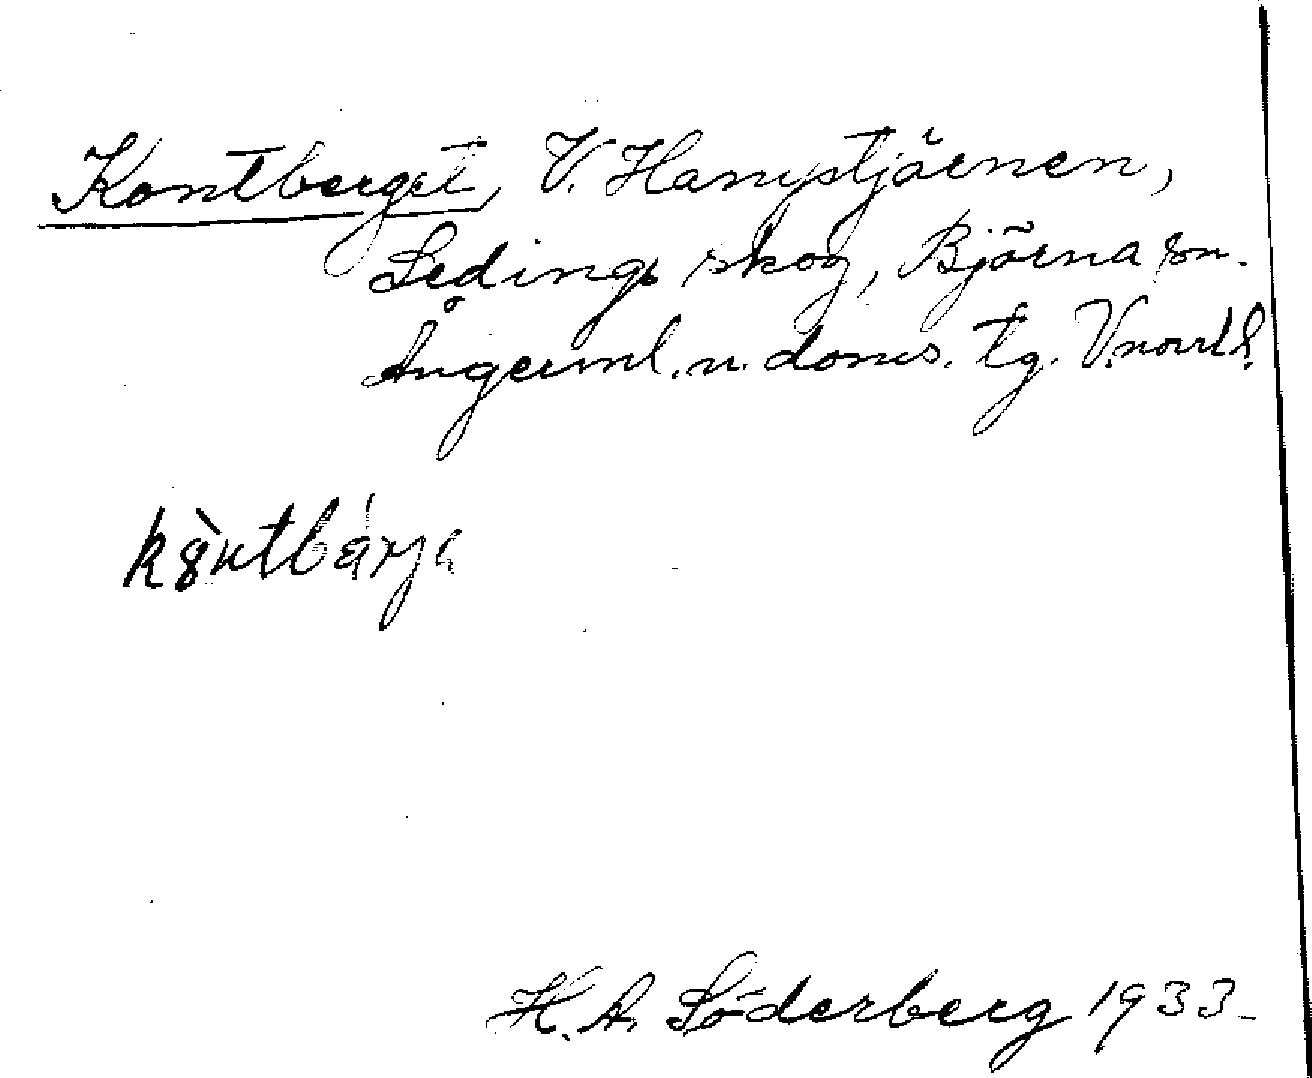 Kontberget, V. Hampstjärnen,
Sedings skog, Björna sn.
Ångerml. n. doms. tg. V.norrl.
H. A. Söderberg 1933